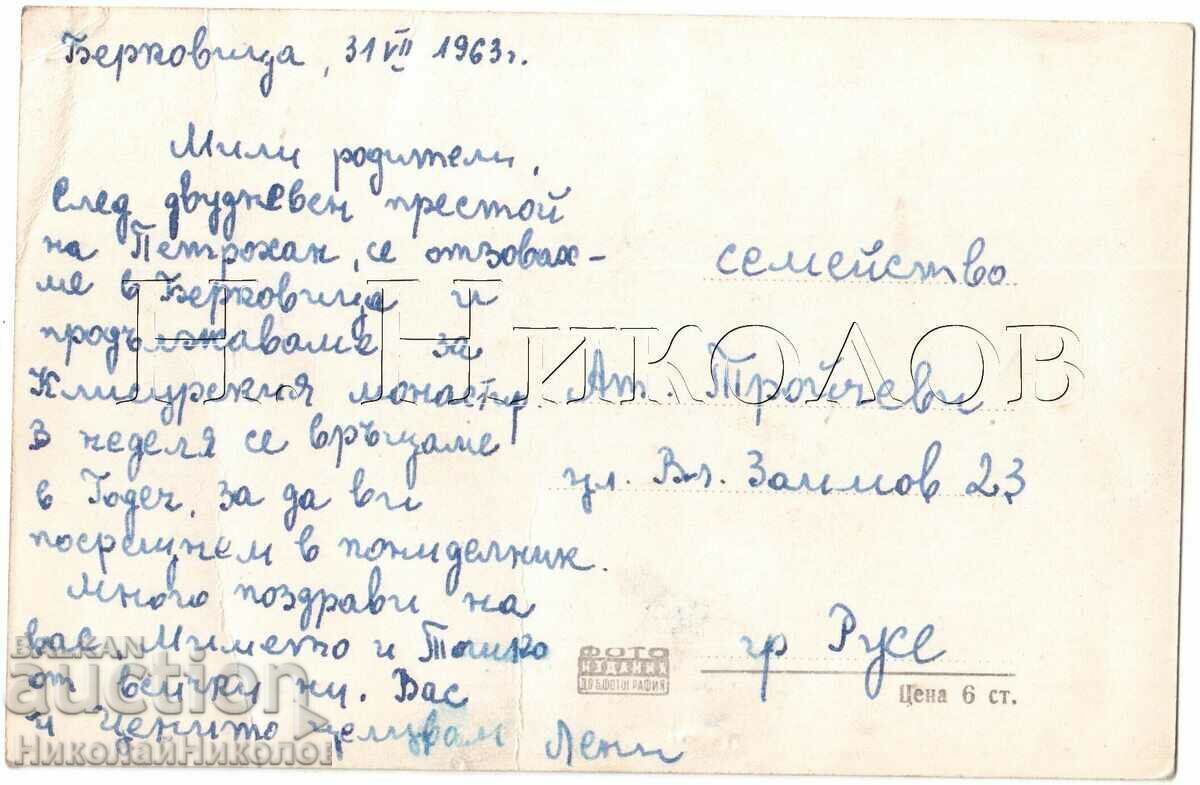 Берковица, 31 VII 1963г.
Мили родители,
след двудневен престой
на Петрохан, се отзовах-
ме в Берковица и
продължаваме за
Клисурския монастир.
В неделя се връщаме
в Годеч, за да ви
посрещнем в пониделник.
Много поздрави на
вас, Мимето и Тошко
от всички ни. Вас
и Ценито целувам Лени
семейство
Ат. Тройчеви
ул. Вл. Заимов 23
гр Русе
Цена 6 ст.
ФОТО
ИЗДАНИЯ
ДП БЪЛГ. ФОТОГРАФИЯ
Н. НИКОЛОВ
BALKAN
auction
НиколайНиколов